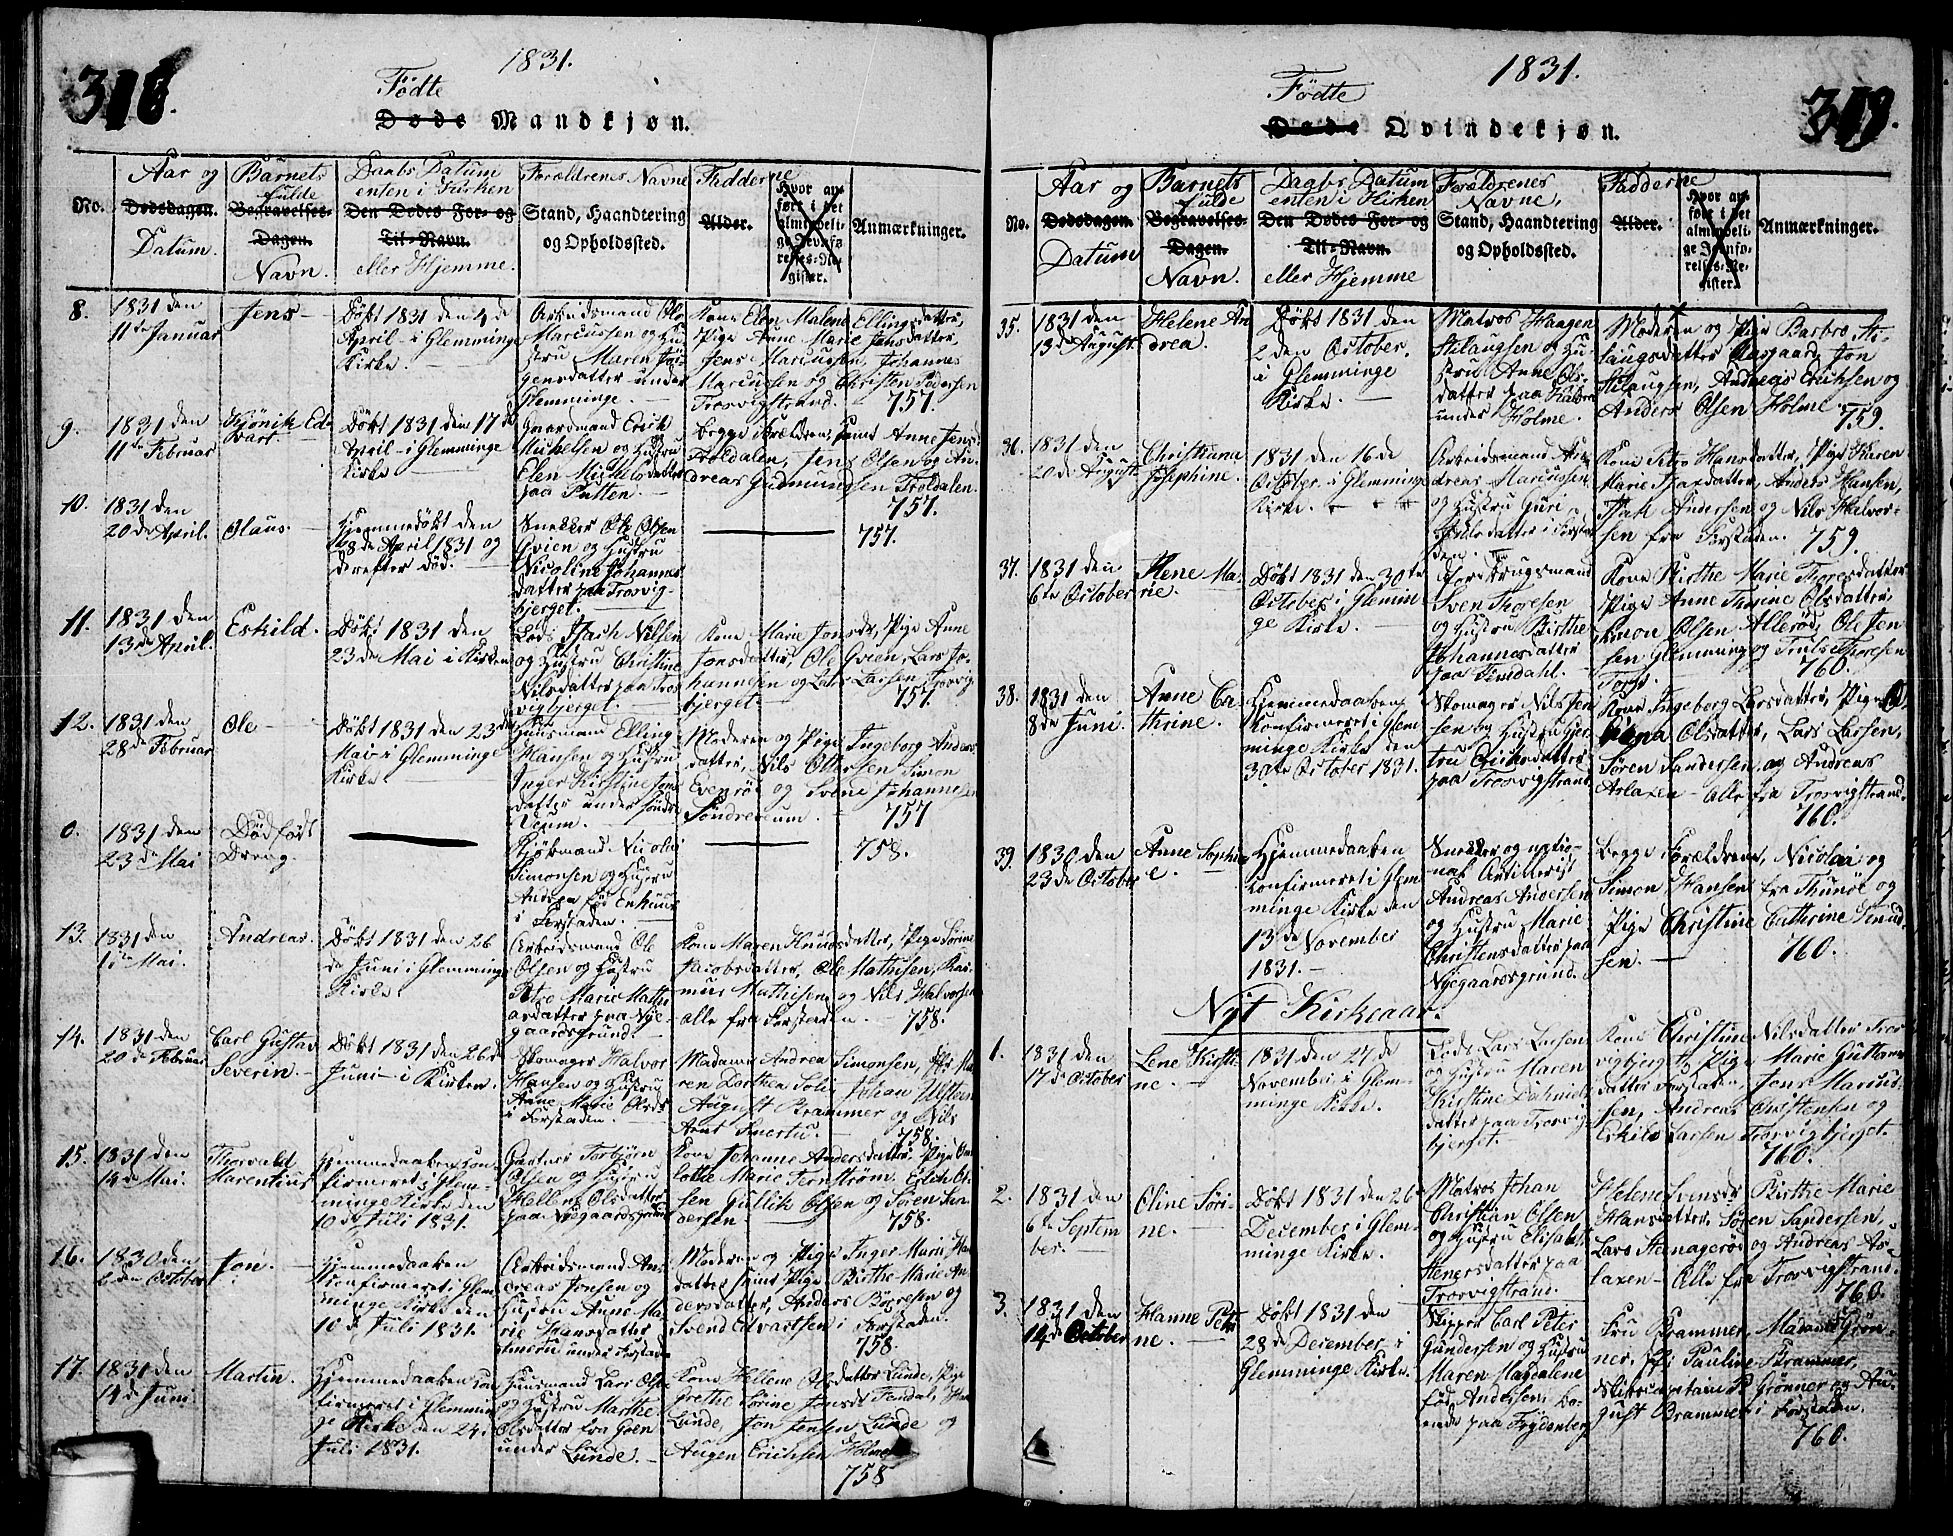 318.
1831.
Födte
Døde Mandkjøn.
No.
Aar og
Dødsdagen.
Datum.
Barnets
fulde
Begravelses-
Dagen.
Navn.
Daabs Datum
enten i Kirken
Den Dødes For- og
Til-Navn.
eller Hjemme.
Forældrenes Navne
Stand, Haandtering
og Opholdssted.
Fadderne
Alder.
Hvor an-
ført i det
almindeli-
ge Jevnfø-
relses-Re-
gister.
Anmærkninger.
8.
1831 den
11te Januar
Jens
Döbt 1831 den 4de
April i Glemminge
Kirke.
Arbeidsmand Ole
Marcussen og Hu-
stru Maren Jör-
gensdatter under
Glemminge.
Kone Elen Malene Ellingsdatter,
Pige Anne Marie Jensdatter,
Jens Marcussen, Johannes
Marcussen og Christen Pedersen
Trosvigstrand.
757.
9.
1831 den
11te Februar
Hjönik Ed-
vart
Döbt 1831 den 17de
April i Glemminge
Kirke
Gaardmand Erick
Mickelsen og Hustru
Elen Mickelsdatter
paa Putten.
begge Forældrene samt Anne Jens
Troldalen, Jens Olsen og An-
dreas Gudmundsen Troldalen.
757.
10.
1831 den
20de April.
Olaus.
Hjemmedöbt den
28de April 1831 og
derefter död.
Snecker Ole Olsen
Gvien og Hustru
Nicoline Johannes-
datter paa Trosvig-
bjerget.
757.
11.
1831 den
13de April.
Eskild.
Döbt 1831 den
23de Mai i Kirken
Lods Isach Nilsen
og Hustru Christine
Nilsdatter paa Tros-
vigbjerget.
Kone Marie Jonsdr, Pige Anne
Jonsdatter, Ole Gvien, Lars Jo-
hannesen og Lars Larsen Trosvig
bjerget.
757.
12.
1831 den
28de Februar
Ole
Döbt 1831 den 23de
Mai i Glemminge
Kirke
Huusmand Elling
Hansen og Hustru
Inger Kirstine Jens
datter under Söndre
Veum.
Moderen og Pige Ingeborg Anders
datter, Nils Ottersen Simon
Evenröd og Svend Johannesen
Söndreveum.
757
0.
1831 den
23de Mai
Dödfödt
Dreng.
Kjöbmand Nicolai
Simonsen og Hustru
Andrea föd Enhuus
i Forstaden.
758.
13.
1831 den
1ste Mai.
Andreas.
Döbt 1831 den 26
de Juni i Glemminge
Kirke
Arbeidsmand Ole
Olsen og Hustru
Petre Marie Mathi
asdatter paa Nye-
gaardsgrund.
Kone Maren Knudsdatter, Pige Sörine
Jacobsdatter, Ole Mathisen, Ras-
mus Mathisen og Nils Halvorsen
alle fra Forstaden.
758.
14.
1831 den
20de Februar.
Carl Gustav
Severin.
Döbt 1831 den 26de
Juni i Kirken.
Skomager Halvor
Hansen og Hustru
Anne Marie Olsdr
i Forstaden.
Madame Andrea Simonsen, Jfr Ma-
ren Dorthea Solli, Johan Ulsteen
August Brammer og Nils
758.
15.
1831 den
14de Mai.
Thorvald
Marentius
Hjemmedaaben con-
firmeret i Glem-
minge Kirke den
10de Juli 1831.
Gartner Torbjörn
Olsen og Hustru
Hellene Olsdatter
paa Nyegaardsgrund
Kone Johanne Andersdatter, Pige Char
lotte Marie Fernström, Erich Ol-
sen Gullik Olsen og Sören San-
dersen.
758.
16.
1830 den
2den October
Jon.
Hjemmedaaben
Konfirmeret i Glem-
minge Kirke den
10de Juli 1831.
Arbeidsmand An-
dreas Jonsen og
Hustru Anne Ma-
rie Hansdatter
under Forstaden
Moderen og Pige Inger Marie Hans
datter samt Pige Birthe Marie An-
dersdatter, Anders Börresen og
Svend Edvartsen i Forstaden.
758.
17.
1831 den
14de Juni
Martin.
Hjemmedaaben con
firmeret i Glemmin
ge Kirke den 24de
Juli 1831.
Huusmand Lars Olsen
og Hustru Marthe
Olsdatter fra Goen
under Lunde.
Kone Hellene Olsdatter Lunde, Pige
Grethe Sörine Jonsdr Femdal, Hans
Lunde, Jon Jensen Lunde og
Augen Erichsen Holme
758
319.
1831.
Födte
Døde Qvindekjøn.
No.
Aar og
Dødsdagen.
Datum
Barnets
fulde
Begravelses-
Dagen.
Navn.
Daabs Datum
enten i Kirken
Den Dødes For- og
Til-Navn.
eller Hjemme
Forældrenes
Navne,
Stand, Haandtering
og Opholdssted.
Fadderne
Alder.
Hvor an-
ført i det
almindeli-
ge Jevnfø-
relses-Re-
gister.
Anmærkninger.
35.
1831 den
13de August.
Helene An
drea.
Döbt 1831 den
2den October.
i Glemminge
Kirke.
Matros Haagen
Stilaugsen og Hu-
stru Anne Ols-
datter paa Kalvö
under Holme.
Moderen og Pige Barbro Sti-
laugsdatter Aasgaard, Jon
Stilaugsen, Andreas Erichsen og
Anders Olsen Holme.
759.
36.
1831 den
20de August
Christiana
Josephine.
1831 den 16de
October i Glemminge
Kirke.
Arbeidsmand An-
dreas Marcussen
og Hustru Guri
datter i Forsta
den.
Kone Petro Hansdatter, Pige Karen
Marie Ifarsdatter, Anders Hansen,
Isak Andersen og Nils Halvor-
sen fra Forstaden.
759.
37.
1831 den
6te October
Elene Ma-
rie.
Döbt 1831 den 30te
October i Glemmin
ge Kirke.
Forbrugsmand
Sven Thoresen
og Hustru Birthe
Johannesdatter
paa Femdahl.
Kone Birthe Marie Thoresdatter
Pige Anne Thrine Olsdatter,
Simon Olsen Alleröd, Ole Jen-
sen Glemming og Truls Thoresen
Torp.
760.
38.
1831 den
8de Juni
Anne Ca-
thrine.
Hjemmedaaben
Konfirmeret i Glem
minge Kirke den
30te October 1831.
Skomager Nils Sten
sen og Hustru Ger-
tru Erichsdatter
paa Trosvigstrand
Kone Ingeborg Larsdatter, Pige
Olsdatter, Lars Larsen,
Sören Sandersen og Andreas
Aslaxen alle fra Trosvigstrand.
760.
39.
1830 den
23de October
Anne Sophi-
e.
Hjemmedaaben
Konfirmeret i Glem
minge Kirke den
13de November
1831.
Snecker og natio-
nal Artillerist
Andreas Andersen
og Hustru Marie
Christensdatter paa
Nyegaardsgrund.
Begge Forældrene, Nicolai og
Simon Hansen fra Thunöe og
Pige Christine Cathrine Knud-
sen.
760.
Nyt Kirkeaar.
1.
1831 den
17de October
Lene Kirsti-
ne.
1831 den 27de
November i Glem-
minge Kirke.
Lods Lars Larsen
og Hustru Maren
Kirstine
datter paa Trosvig-
bjerget.
Kone Christine Nilsdatter Tros-
vigbjerget, Pige Marie Guttorms
datter Forstaden, Jens Marcus-
sen, Andreas Christensen og
Eskild Larsen Trosvigbjerget.
760.
2.
1831 den
6te Septem
ber.
Oline Söri-
ne.
Döbt 1831 den 26de
December i Glem-
minge Kirke.
Matros Johan
Christian Olsen
og Hustru Elisabeth
Stenersdatter paa
Trosvigstrand.
Helene Svensdr, Birthe Marie
Hansdatter, Sören Sandersen,
Lars Stenageröd og Andreas As-
laxen Alle fra Trosvigstrand.
760.
3.
1831 den
14de October
Hanne Petri-
ne.
Döbt 1831 den
28de December i
Glemminge Kirke.
Skipper Carl Peter
Gundersen og Hustru
Maren Magdalene
föd Andersen, bo-
ende paa
Fru Brammer, Madame Grön-
ner, Jfr Pauline Brammer,
Skibscapitain P. Grönner og Au-
gust Brammer i Forstaden.
760.